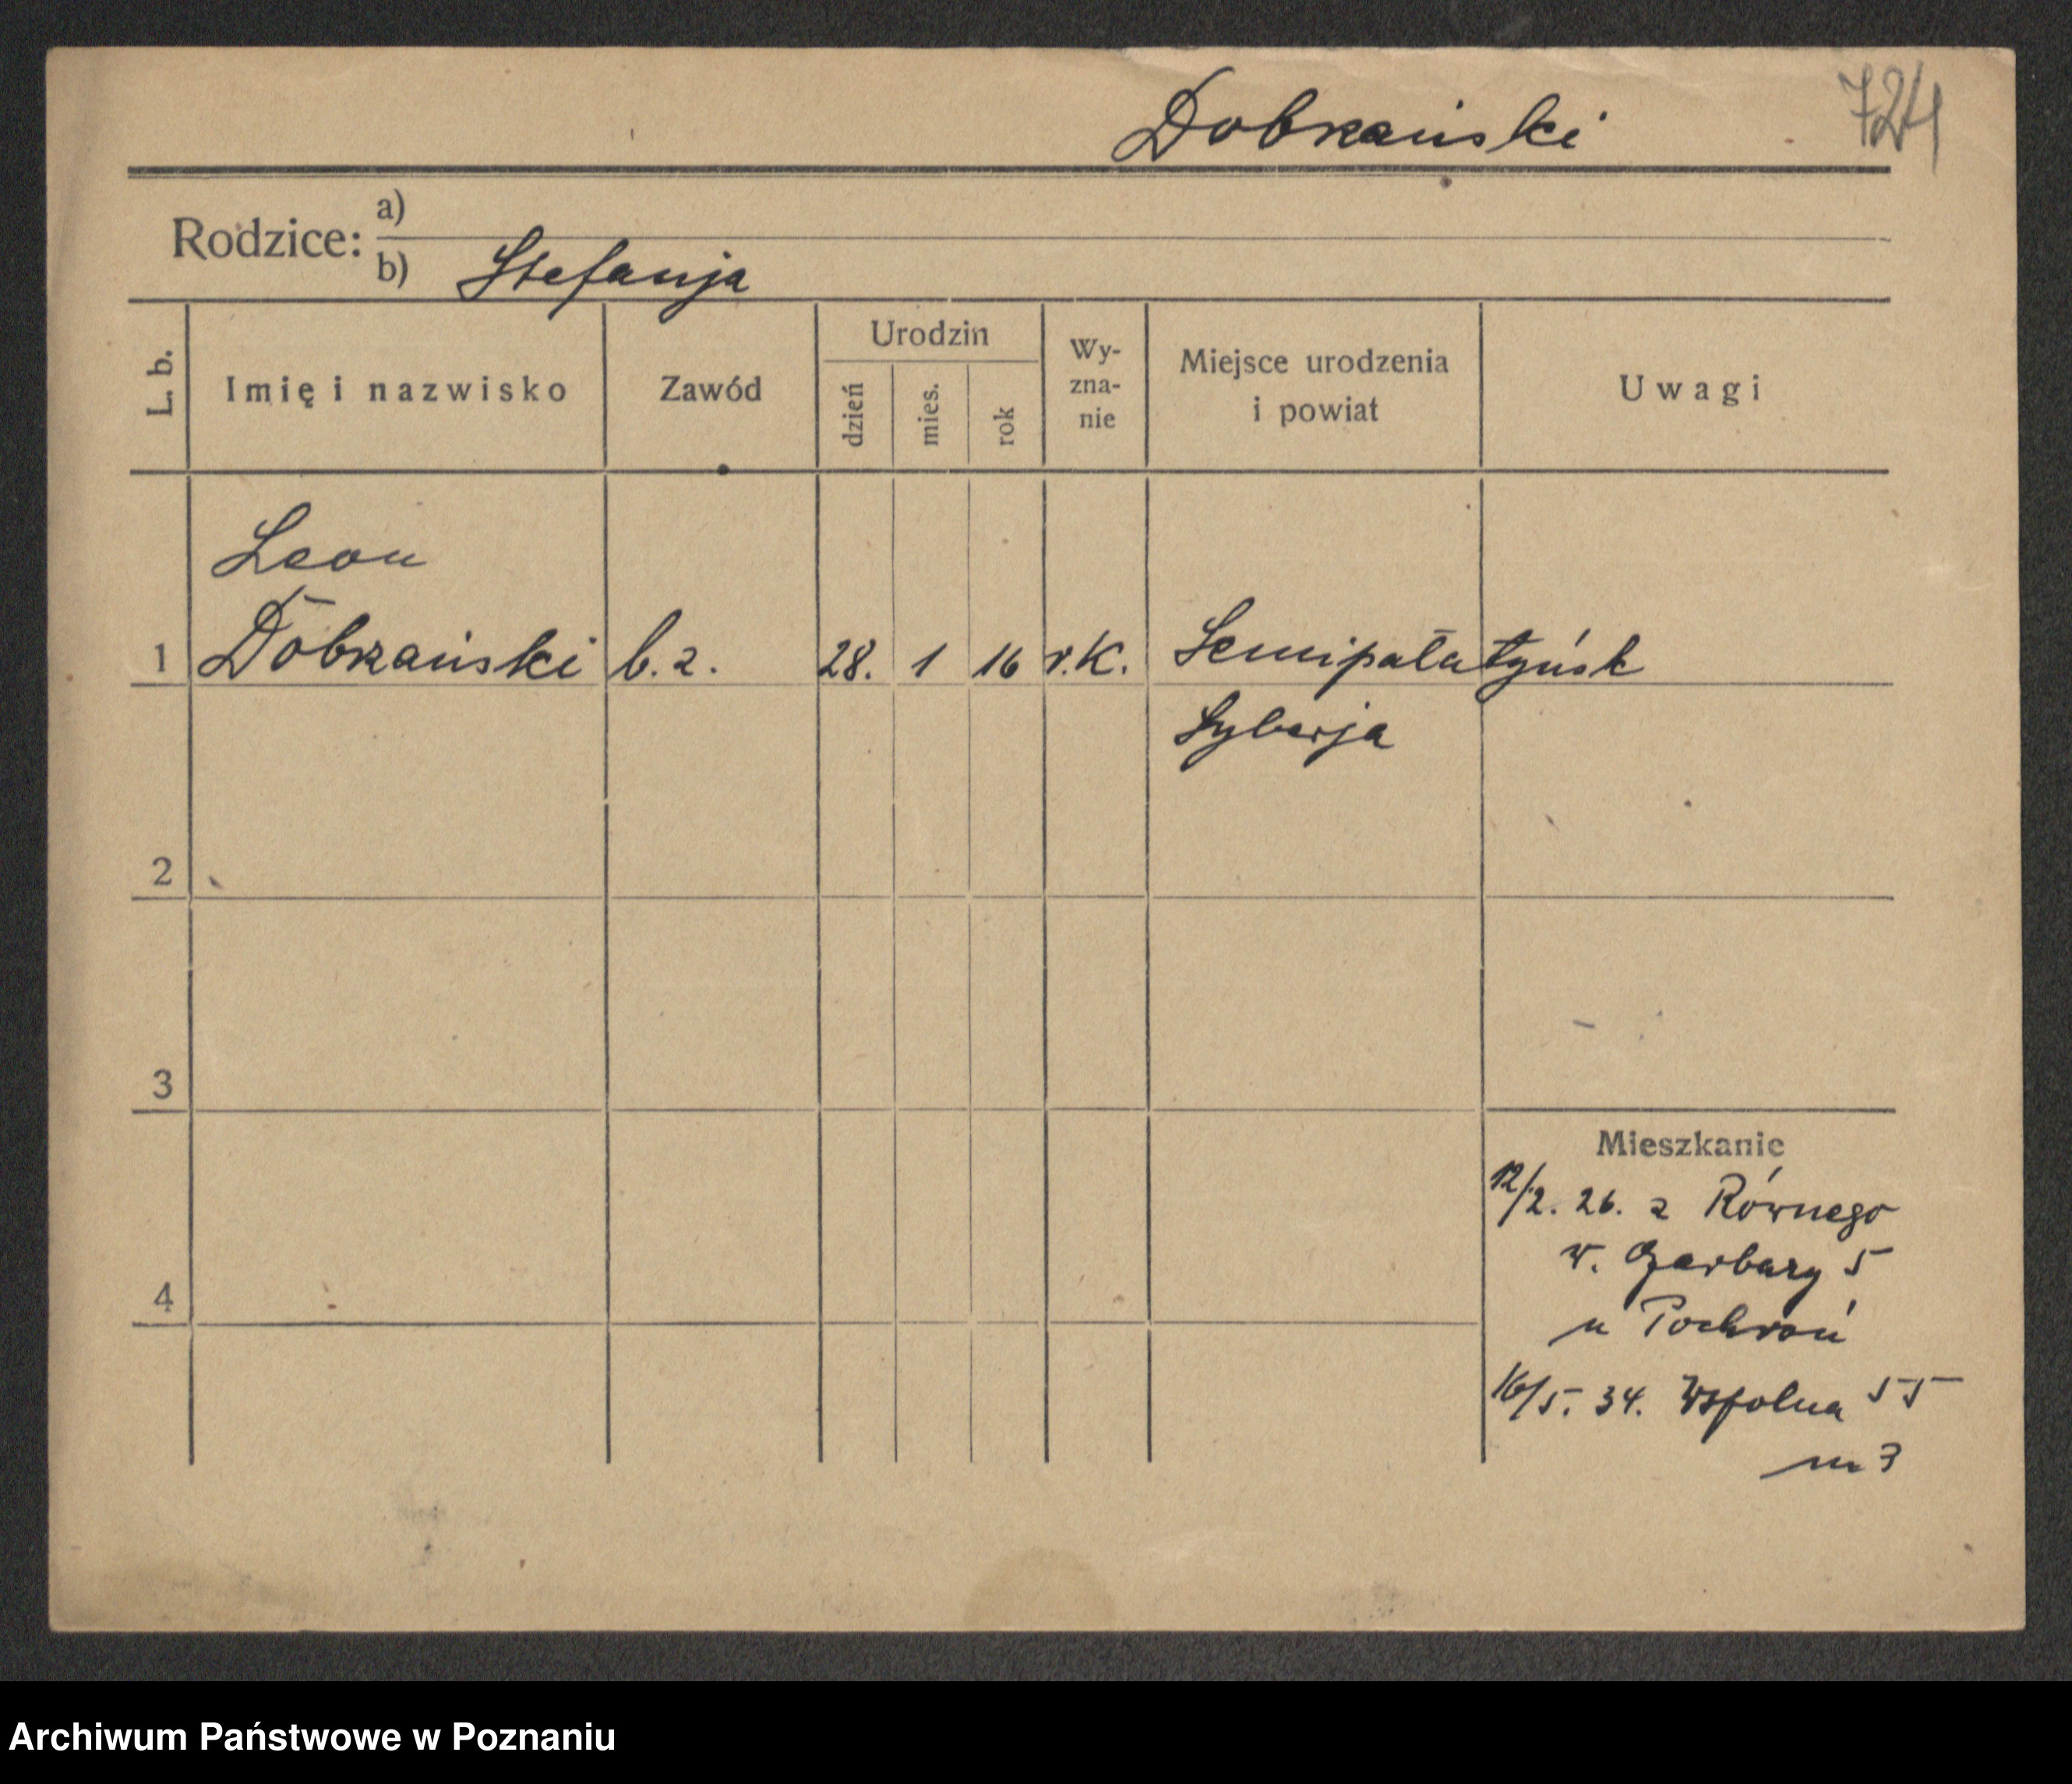 Dobrzański 724
Rodzice: a)
b) Stefanja
L. b. Imię i nazwisko Zawód Urodzin dzień mies. rok Wy-zna-nie Miejsce urodzenia i powiat Uwagi
Leon
1 Dobrzański b. z. 28. 1 16 r.K. Semipałatyńsk
Syberja
2
3
Mieszkanie
12/2. 26. z Równego
w. Garbary 5
4
u Pochroń
16/5. 34. Wspolna 55
m 3
Archiwum Państwowe w Poznaniu